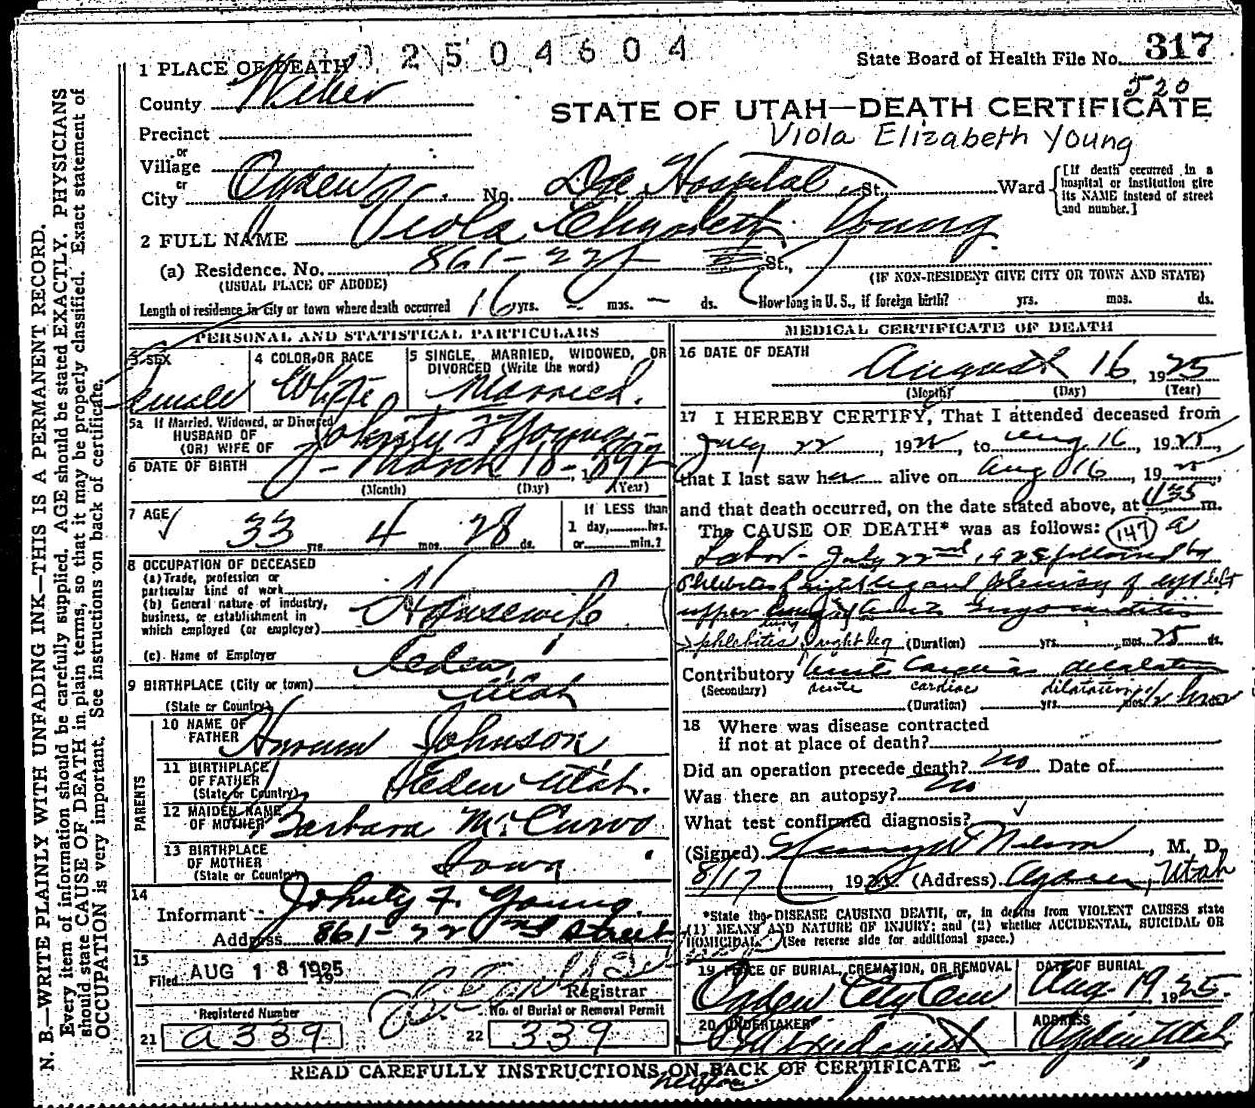 02504604
State Board of Health File No. 317
520
1 PLACE OF DEATH
County Weber
STATE OF UTAH—DEATH CERTIFICATE
Precinct
Viola Elizabeth Young
or
Village
or
City Ogden No. Dee Hospital St., Ward
[If death occurred in a hospital or institution give its NAME instead of street and number.]
2 FULL NAME Viola Elizabeth Young
(a) Residence. No. 861-22 St.,
(USUAL PLACE OF ABODE) (IF NON-RESIDENT GIVE CITY OR TOWN AND STATE)
Length of residence in city or town where death occurred 16 yrs. - mos. - ds. How long in U. S., if foreign birth? yrs. mos. ds.
PERSONAL AND STATISTICAL PARTICULARS
3 SEX Female
4 COLOR OR RACE White
5 SINGLE, MARRIED, WIDOWED, OR DIVORCED (Write the word) Married.
5a If Married, Widowed, or Divorced
HUSBAND OF
(OR) WIFE OF Johnty F Young
6 DATE OF BIRTH March 18-1892
(Month) (Day) (Year)
7 AGE 33 yrs. 4 mos. 28 ds.
If LESS than
1 day, hrs.
or min.?
8 OCCUPATION OF DECEASED
(a) Trade, profession or
particular kind of work
(b) General nature of industry,
business, or establishment in
which employed (or employer) Housewife
(c) Name of Employer
9 BIRTHPLACE (City or town) Eden,
(State or Country) Utah
PARENTS
10 NAME OF
FATHER Johnson
11 BIRTHPLACE
OF FATHER
(State or Country) Eden Utah.
12 MAIDEN NAME
OF MOTHER Barbara
13 BIRTHPLACE
OF MOTHER
(State or Country) Iowa
14
Informant Johnty F. Young.
Address 861-22nd Street
15
Filed AUG 18 1925
Registrar
Registered Number
21 a339
No. of Burial or Removal Permit
22 339
MEDICAL CERTIFICATE OF DEATH
16 DATE OF DEATH
August 16, 1925
(Month) (Day) (Year)
17 I HEREBY CERTIFY, That I attended deceased from
July 22 1925, to Aug. 16, 1925,
that I last saw her alive on Aug 16 1925
and that death occurred, on the date stated above, at 1:35 m.
The CAUSE OF DEATH* was as follows: 147 a
Labor - July 22nd 1925 followed by
phlebitis right leg and of left
upper
phlebitis right leg (Duration) yrs. mos. 25 ds.
Contributory acute cardiac dilatation
(Secondary) acute cardiac dilatation
(Duration) yrs. mos. 1/2 hour
18 Where was disease contracted
if not at place of death?
Did an operation precede death? no Date of
Was there an autopsy? no
What test confirmed diagnosis?
(Signed) Nelson, M. D.
8/17, 1925 (Address) Ogden, Utah
*State the DISEASE CAUSING DEATH, or, in deaths from VIOLENT CAUSES state
(1) MEANS AND NATURE OF INJURY; and (2) whether ACCIDENTAL, SUICIDAL OR
HOMICIDAL. (See reverse side for additional space.)
19 PLACE OF BURIAL, CREMATION, OR REMOVAL
Ogden City Cem
DATE OF BURIAL
Aug. 19, 1925.
20 UNDERTAKER
ADDRESS
Ogden Utah
READ CAREFULLY INSTRUCTIONS ON BACK OF CERTIFICATE
N. B.—WRITE PLAINLY WITH UNFADING INK—THIS IS A PERMANENT RECORD.
Every item of information should be carefully supplied. AGE should be stated EXACTLY. PHYSICIANS
should state CAUSE OF DEATH in plain terms, so that it may be properly classified. Exact statement of
OCCUPATION is very important. See instructions on back of certificate.